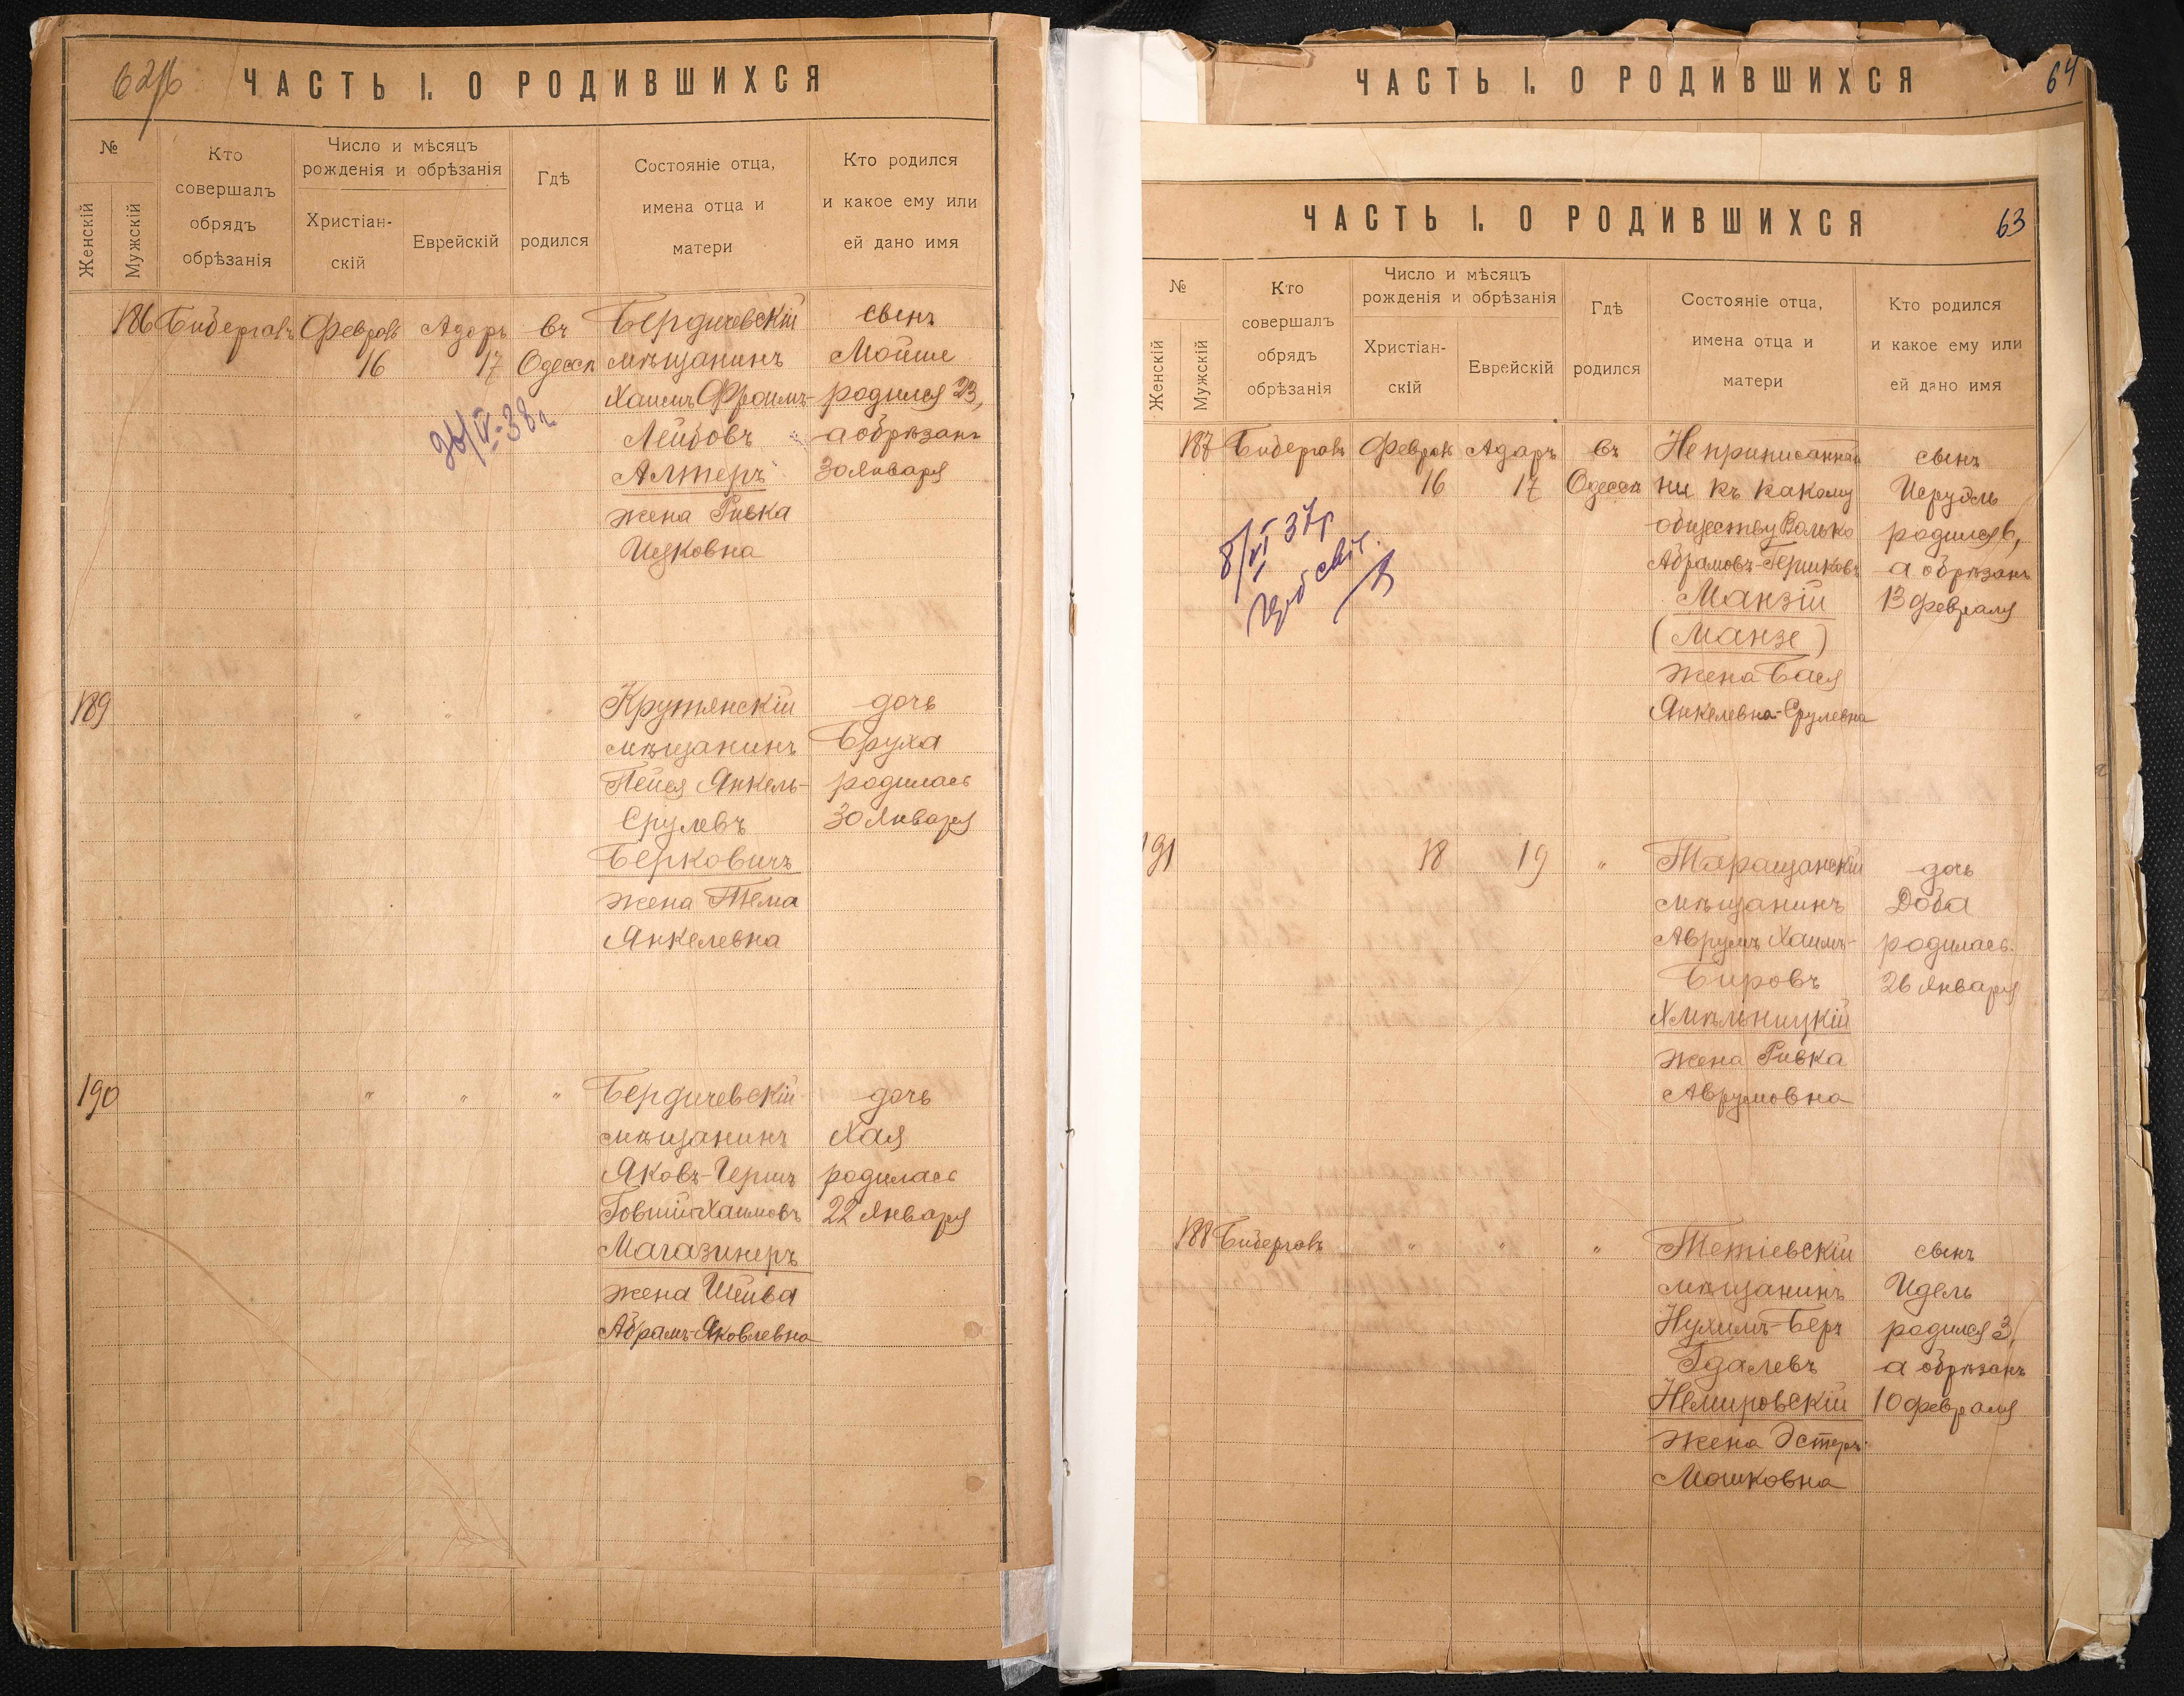 62/б
ЧАСТЬ I. О РОДИВШИХСЯ
№
Женскій
Мужскій
Кто
совершалъ
обрядъ
обрѣзанія
Число и мѣсяцъ
рожденія и обрѣзанія
Христіан-
скій
Еврейскій
Гдѣ
родился
Состояніе отца,
имена отца и
матери
Кто родился
и какое ему или
ей дано имя
186
Бибергалъ
Февраль
16
Адаръ
17
въ
Одессѣ
Бердичевскій
мѣщанинъ
Хаимъ Фроимъ-
Лейбовъ
Алтеръ
жена Ривка
Ицковна
сынъ
Мойше
родился 23,
а обрѣзанъ
30 Января
189
"
"
"
Крутянскій
мѣщанинъ
Пейся Янкель-
Срулевъ
Берковичъ
жена Тема
Янкелевна
дочь
Бруха
родилась
30 Января
190
"
"
"
Бердичевскій
мѣщанинъ
Яковъ-Гершъ
Говшій-Хаимовъ
Магазинеръ
жена Шейва
Абрамъ-Яковлевна
дочь
Хая
родилась
22 Января
ЧАСТЬ I. О РОДИВШИХСЯ
64
ЧАСТЬ I. О РОДИВШИХСЯ
63
№
Женскій
Мужскій
Кто
совершалъ
обрядъ
обрѣзанія
Число и мѣсяцъ
рожденія и обрѣзанія
Христіан-
скій
Еврейскій
Гдѣ
родился
Состояніе отца,
имена отца и
матери
Кто родился
и какое ему или
ей дано имя
187
Бибергалъ
Февраль
16
Адаръ
17
въ
Одессѣ
8/VI 37г
Не приписанный
ни къ какому
обществу Волько
Абрамовъ-Гершковъ
Манзій
(Манзе)
жена Бася
Янкелевна-Срулевна
сынъ
Исруэль
родился 6,
а обрѣзанъ
13 февраля
191
18
19
"
Таращанскій
мѣщанинъ
Аврумъ Хаимъ-
Бировъ
Хмѣльницкій
жена Ривка
Аврумовна
дочь
Доба
родилась
26 Января
188
Бибергалъ
"
"
"
Тетіевскій
мѣщанинъ
Нухимъ-Беръ
Гдалевъ
Немировскій
жена Эстеръ
Мошковна
сынъ
Идель
родился 3,
а обрѣзанъ
10 февраля